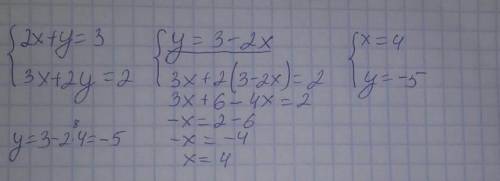 {2x+y=3
{3x+2y=2
y=3-2·4=-5
{y=3-2x
{3x+2(3-2x)=2
3x+6-4x=2
-x=2-6
-x=-4
x=4
{x=4
{y=-5